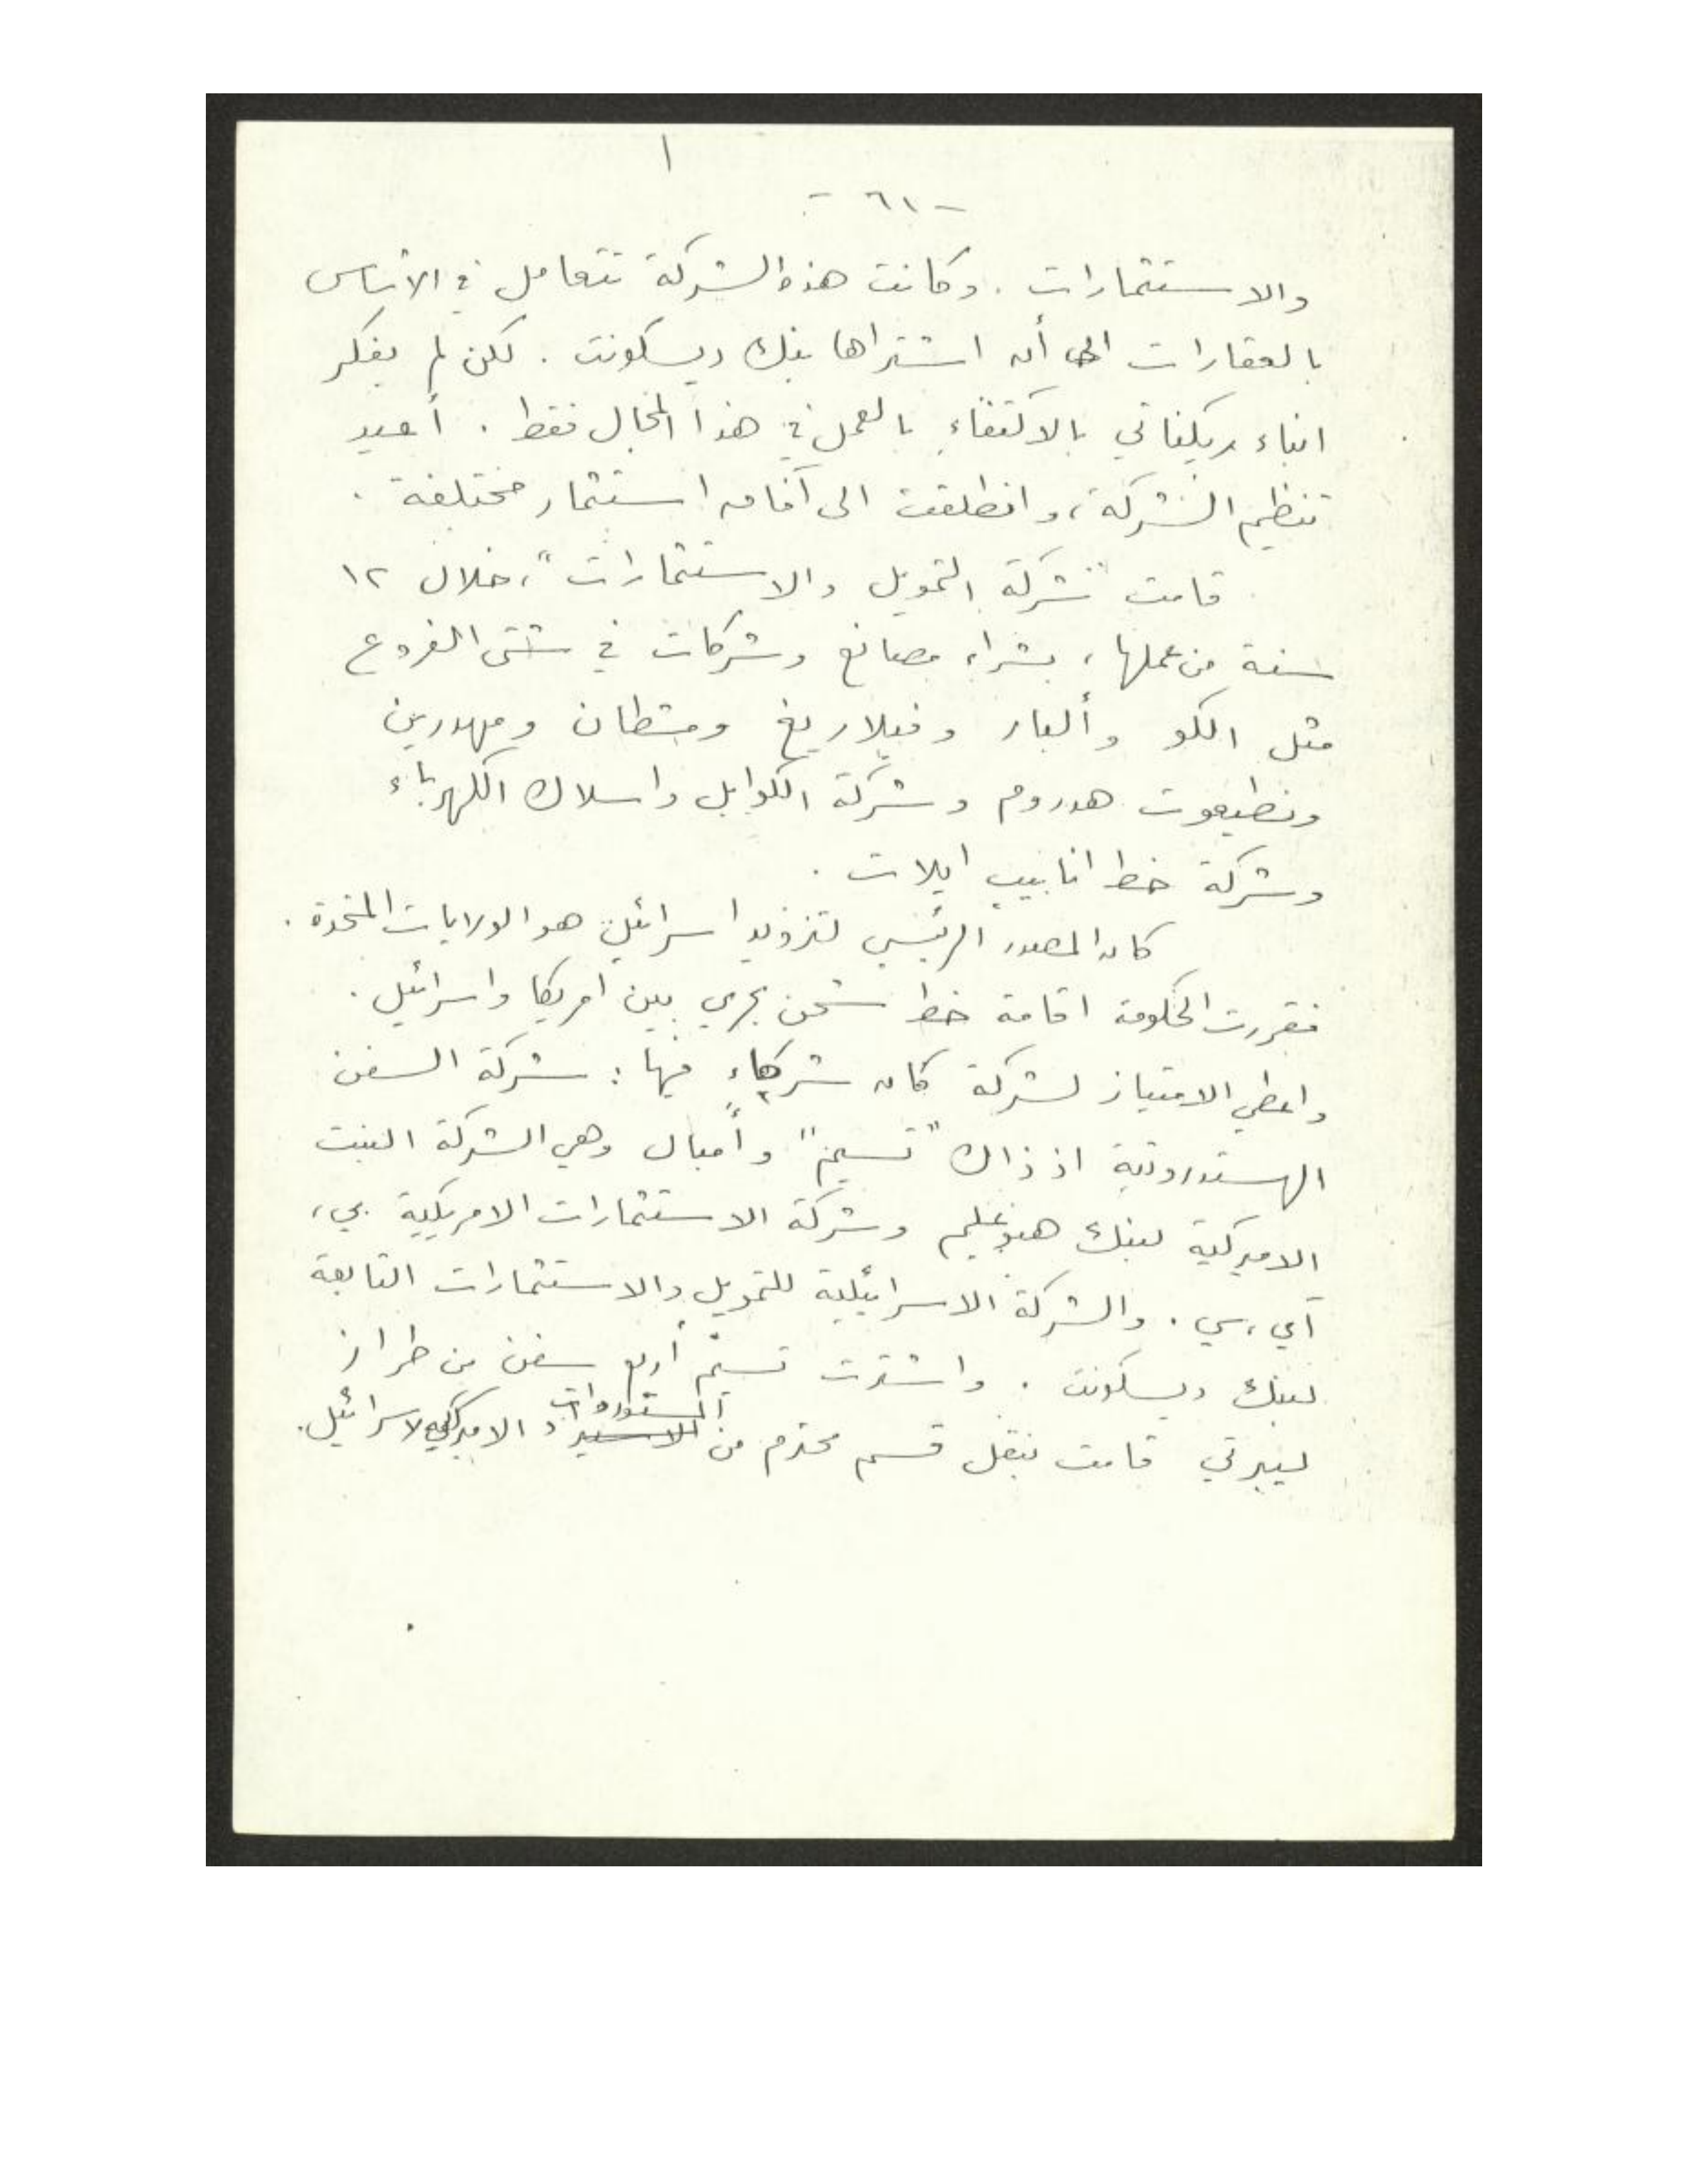 ا
- ٦١ -
والاستثمارات . وكانت هذه الشركة تتعامل في الاساس
بالعقارات الى أن اشتراها بنك ديسكونت . لكن لم يفكر
ابناء ريكناتي بالاكتفاء بالعمل في هذا المجال فقط . أعيد
تنظيم الشركة ، وانطلقت الى آفاق استثمار مختلفة .
قامت "شركة التمويل والاستثمارات" ، خلال ١٢
سنة من عملها ، بشراء مصانع وشركات في شتى الفروع
مثل الكو وألبار وفيلاريغ ومشطان ومهدرين
ونطيعوت هدروم وشركة الكوابل واسلاك الكهرباء
وشركة خط انابيب ايلات .
كان المصدر الرئيسي لتزويد اسرائيل هو الولايات المتحدة .
فقررت الحكومة اقامة خط شحن بحري بين امريكا واسرائيل .
واعطي الامتياز لشركة كان شركاء فيها : شركة السفن
الهستدروتية اذ ذاك "تسيم" وأمبال وهي الشركة البنت
الاميركية لبنك هبوعليم وشركة الاستثمارات الامريكية بي ،
آي ، سي . والشركة الاسرائيلية للتمويل والاستثمارات التابعة
لبنك ديسكونت . واشترت تسيم أربع سفن من طراز
ليبرتي قامت بنقل قسم محترم من المستوردات الاميركية لاسرائيل .